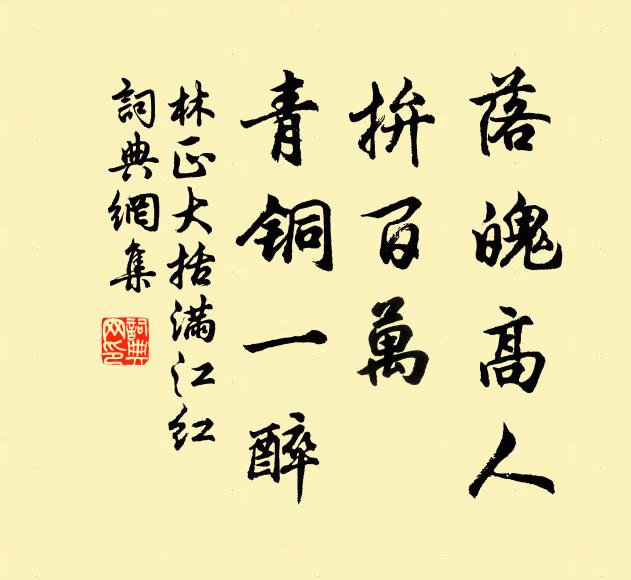 落魄高人
拚百萬
青銅一醉
林正大括滿江紅
詞典網集
詞典網印